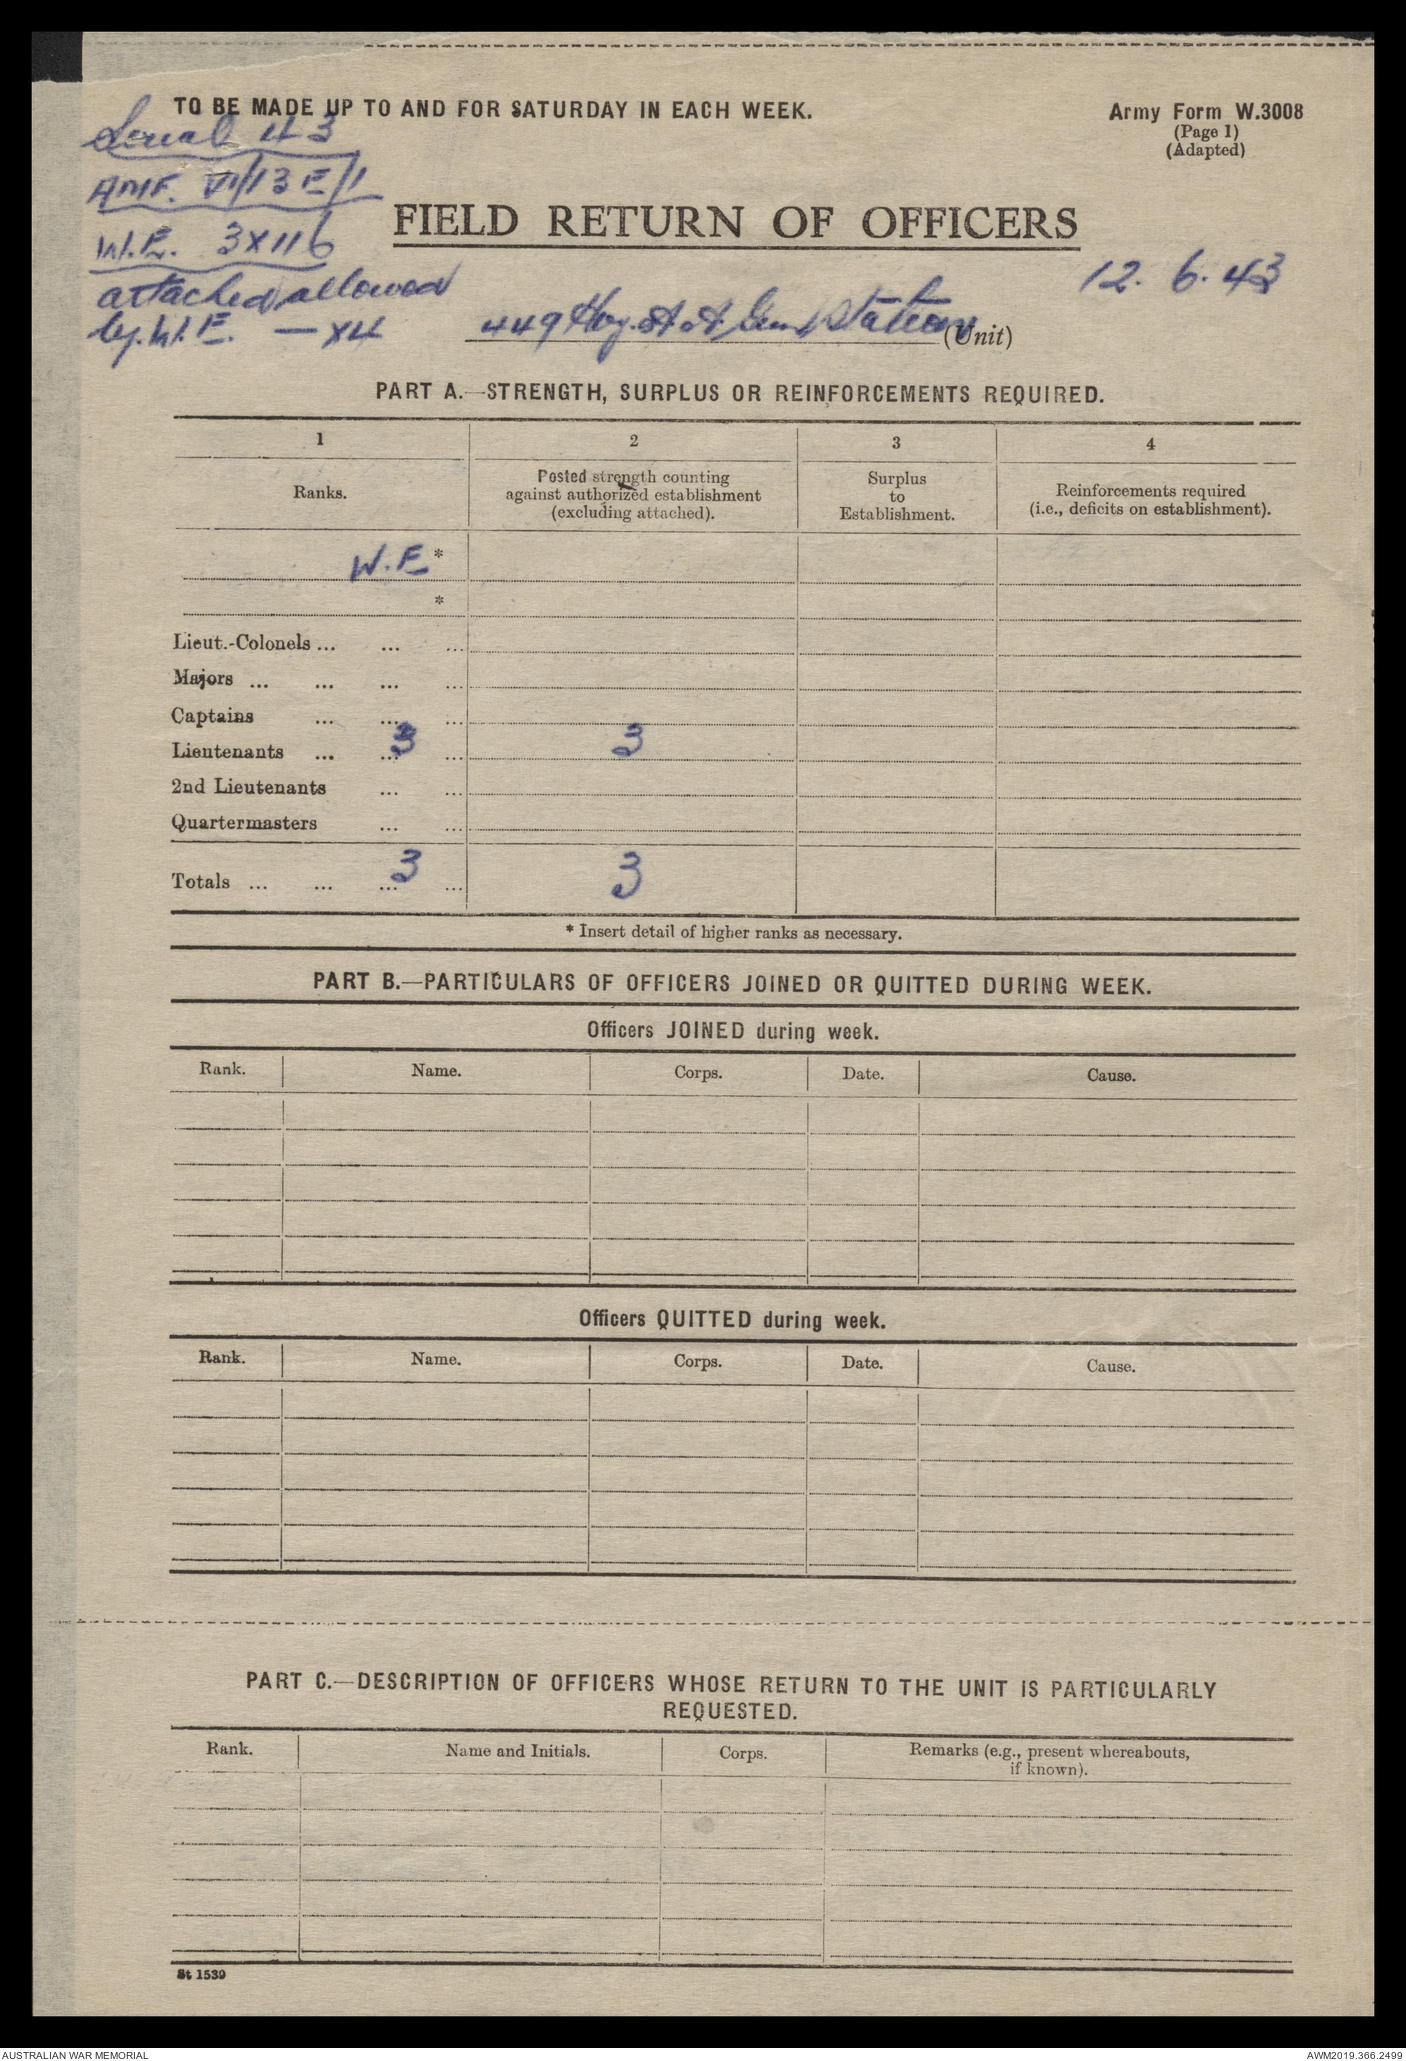 TO BE MADE UP TO AND FOR SATURDAY IN EACH WEEK.
Army Form W.3008
(Page 1)
(Adapted)
Serial 43
AMF. VI/13E/1
W.E. 3X116
attached allowed
by W.E. — X4
FIELD RETURN OF OFFICERS
12. 6. 43
449 Hvy. A A Gun Station (Unit)
PART A.—STRENGTH, SURPLUS OR REINFORCEMENTS REQUIRED.
1 2 3 4
Ranks.
Posted strength counting
against authorized establishment
(excluding attached).
Surplus
to
Establishment.
Reinforcements required
(i.e., deficits on establishment).
W.E *
*
Lieut.-Colonels ... ... ...
Majors ... ... ... ...
Captains ... ... ...
Lieutenants ... ... 3 ... 3
2nd Lieutenants ... ...
Quartermasters ... ...
Totals ... ... ... 3 ... 3
* Insert detail of higher ranks as necessary.
PART B.—PARTICULARS OF OFFICERS JOINED OR QUITTED DURING WEEK.
Officers JOINED during week.
Rank. Name. Corps. Date. Cause.
Officers QUITTED during week.
Rank. Name. Corps. Date. Cause.
PART C.—DESCRIPTION OF OFFICERS WHOSE RETURN TO THE UNIT IS PARTICULARLY
REQUESTED.
Rank. Name and Initials. Corps. Remarks (e.g., present whereabouts,
if known).
St 1539
AUSTRALIAN WAR MEMORIAL
AWM2019.366.2499